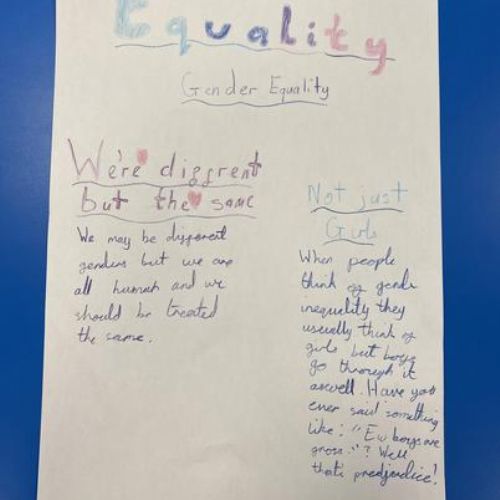 Equality
Gender Equality
We're different
but the same
We may be different
genders but we are
all human and we
should be treated
the same.
Not just
Girls
When people
think of gender
inequality they
usually think of
girls but boys
go through it
aswell. Have you
ever said something
like: "Ew boys are
gross."? Well
that's predjudice!